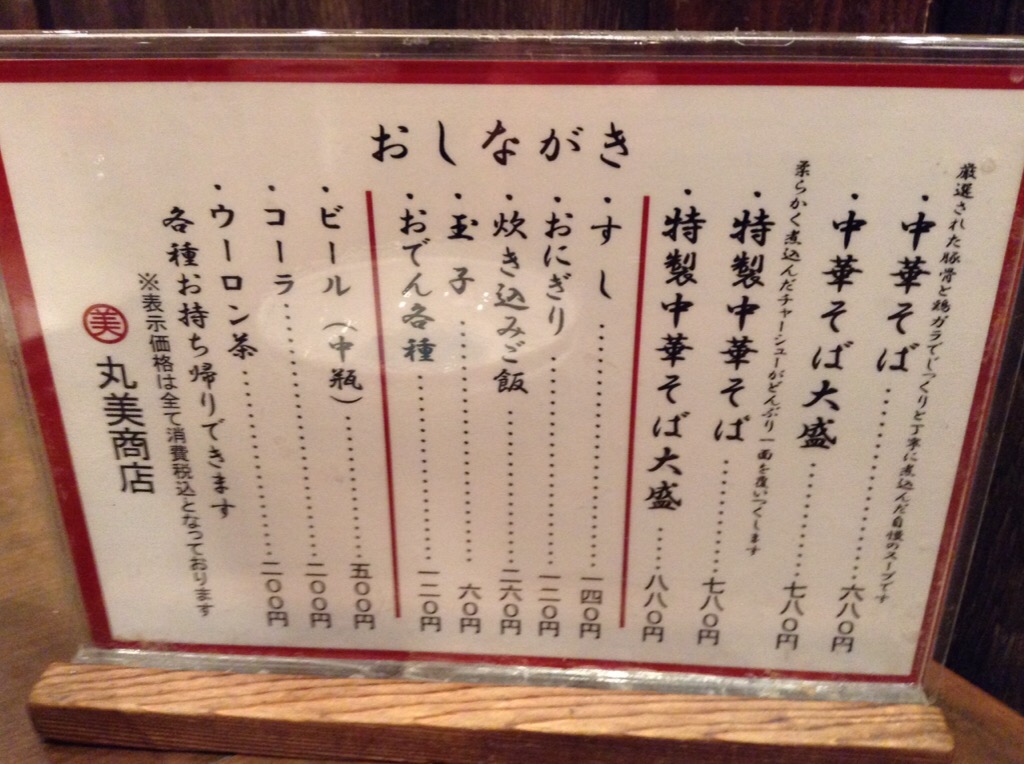 おしながき
厳選された豚骨と鶏ガラでじっくりと丁寧に煮込んだ自慢のスープです
・中華そば……………六八〇円
・中華そば大盛…………七八〇円
柔らかく煮込んだチャーシューがどんぶり一面を覆いつくします
・特製中華そば…………七八〇円
・特製中華そば大盛……八八〇円
・すし……………………一四〇円
・おにぎり………………一二〇円
・炊き込みご飯…………二六〇円
・玉子……………………六〇円
・おでん各種……………一二〇円
・ビール（中瓶）………五〇〇円
・コーラ…………………二〇〇円
・ウーロン茶……………二〇〇円
各種お持ち帰りできます
※表示価格は全て消費税込となっております
美 丸美商店